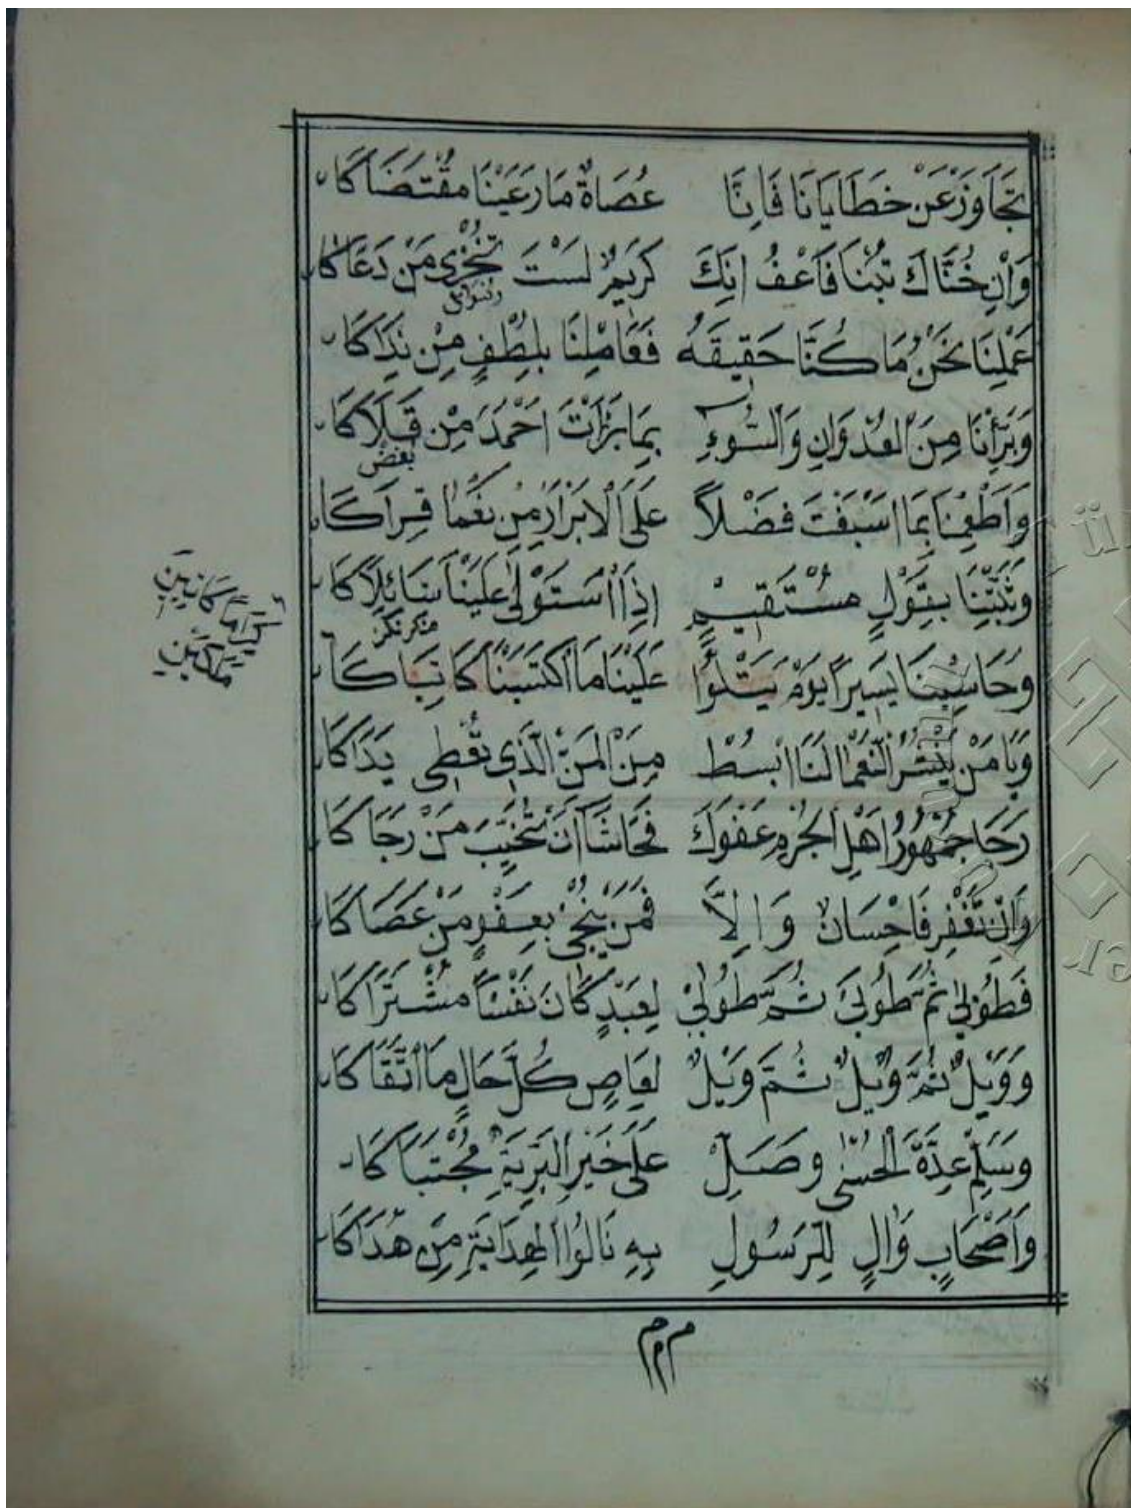 تَجَاوَزْ عَنْ خَطَايَانَا فَاِنَّا عُصَاةٌ مَا رَعَيْنَا مُقْتَضَاكَا
وَاِنْ خُنَّاكَ تُبْنَا فَاعْفُ اِنَّكَ كَرِيمٌ لَسْتَ تُخْزِى مَنْ دَعَاكَا
عَمْلِنَا نَحْنُ مَا كُنَّا حَقِيقَهُ فَعَامِلْنَا بِلُطْفٍ مِنْ نَدَاكَا
وَبَرِّأْنَا مِنَ الْعُدْوَانِ وَالسُّوءِ بِمَا بَرَّأْتَ اَحْمَدَ مِنْ قَِلَاكَا
بغض
وَاَطْعِمْنَا بِمَا اَسْبَغْتَ فَضْلاً عَلَى الْاَبْرَارِ مِنْ نَعْمَا قِرَاكَا
وَثَبِّتْنَا بِقَوْلٍ مُسْتَقِيمٍ اِذَا اسْتَوْلٰى عَلَيْنَا سَائِلَاكَا
منكر نكير
وَحَاسِبْنَا يَسِيراً يَوْمَ يَتْلُوا عَلَيْنَا مَا اكْتَسَبْنَا كَاتِبَاكَا
كاتبين
ملكين
وَيَا مَنْ يَنْشُرُ النَّعْمَا لَنَا ابْسُطْ مِنَ الْمَنِّ الَّذِى تُعْطِى يَدَاكَا
رَجَا جُمْهُورُ اَهْلِ الْجُرْمِ عَفْوَكَ فَحَاشَا اَنْ تُخَيِّبَ مَنْ رَجَاكَا
وَاِنْ تَغْفِرْ فَاِحْسَانٌ وَاِلاَّ فَمَنْ يُنْجِى بِعَفْوٍ مَنْ عَصَاكَا
فَطُوبٰى ثُمَّ طُوبٰى ثُمَّ طُوبٰى لِعَبْدٍ كَانَ نَفْساً مُشْتَرَاكَا
وَوَيْلٌ ثُمَّ وَيْلٌ ثُمَّ وَيْلٌ لِعَاصٍ كُلَّ حَالٍ مَا اتَّقَاكَا
وَسَلِّمْ عِدَّةَ الْحُسْنٰى وَصَلِّ عَلَى خَيْرِ الْبَرِيَّةِ مُجْتَبَاكَا
وَاَصْحَابٍ وَاٰلٍ لِلرَّسُولِ بِهِ نَالُوا الْهِدَايَةَ مِنْ هُدَاكَا
ممم